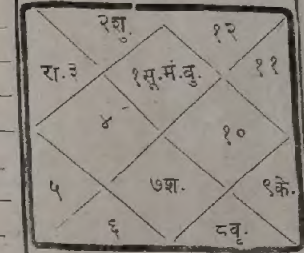 २शु. १२
रा.३ १सू.मं.बु. ११
४ १०
५ ७श. ९के.
६ ८वृ.